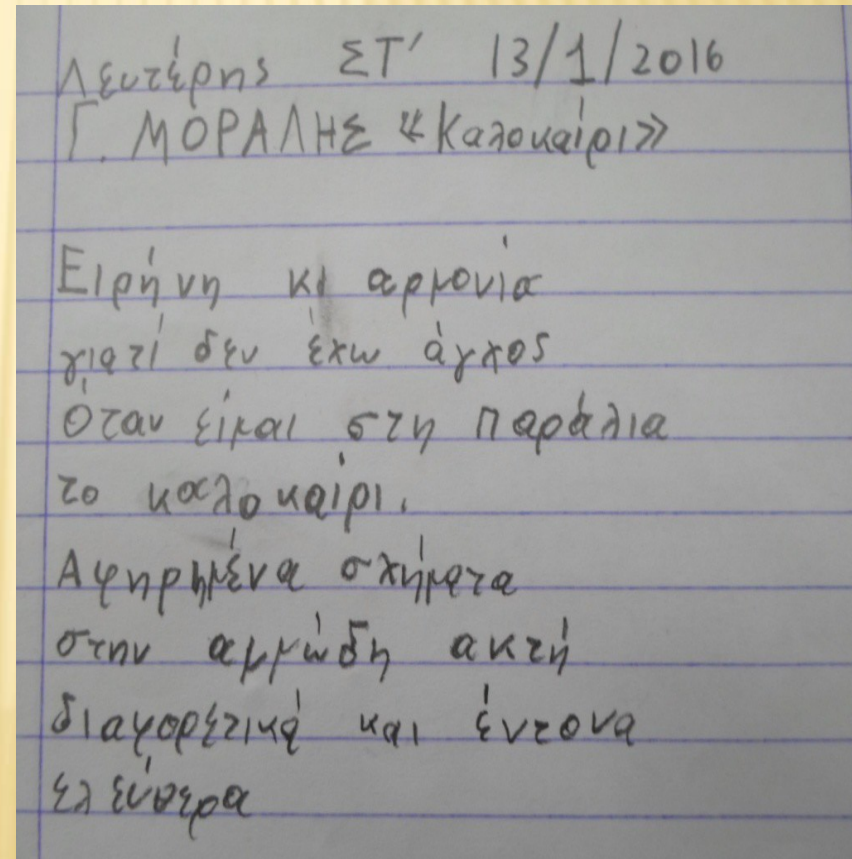 Λευτέρης ΣΤ' 13/1/2016
Γ. ΜΟΡΑΛΗΣ «Καλοκαίρι»
Ειρήνη κι αρμονία
γιατί δεν έχω άγχος
Όταν είμαι στη παράλια
το καλοκαίρι.
Αφηρημένα σχήματα
στην αμμώδη ακτή
διαφορετικά και έντονα
ελεύθερα